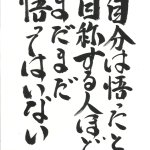 自分は悟ったと
自称する人ほど
まだまだ
悟ってはいない